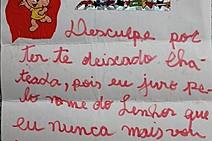 Desculpa por
ter te deixado cha-
teada, pois eu juro pe-
lo nome do Senhor que
eu nunca mais vou